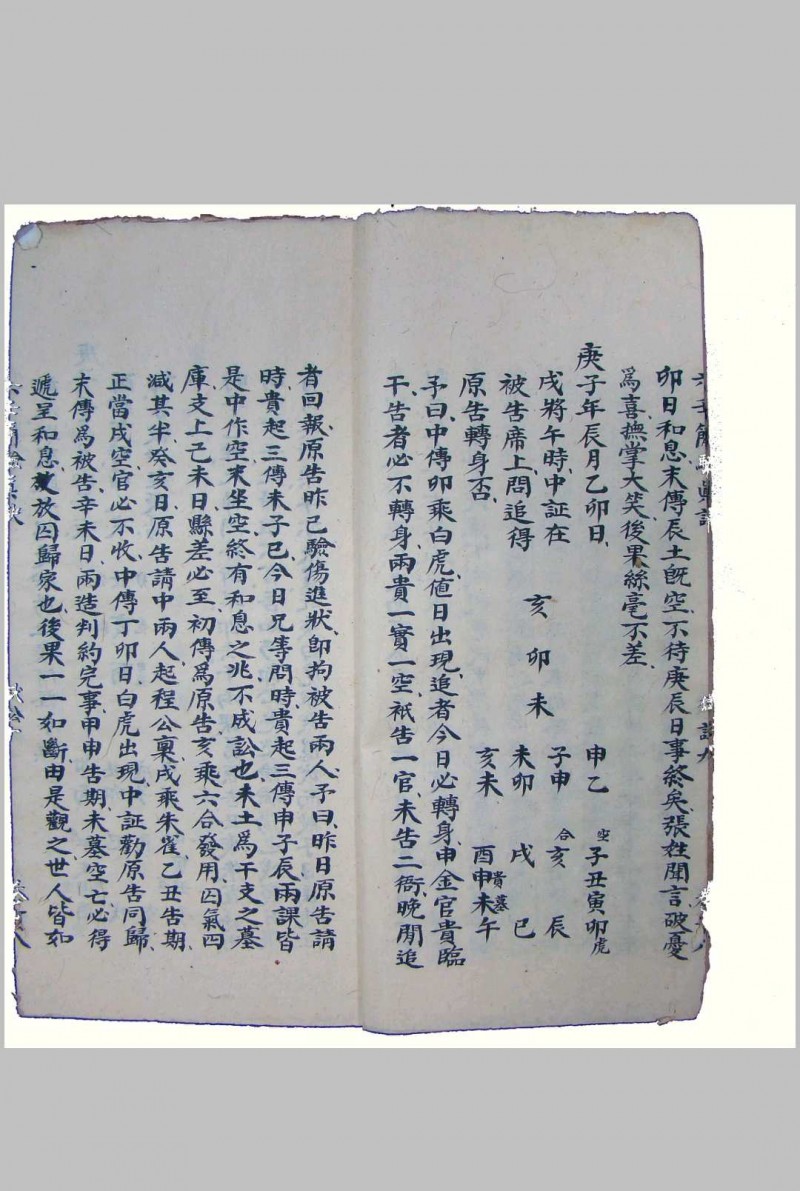 卯日和息、末傳辰土旣空、不待庚辰日事終矣、張姓聞言、破憂
爲喜、撫掌大笑、後果絲毫不差、
庚子年辰月乙卯日、
戌將午時、中証在
被告席上、問追得
原告轉身否、
亥卯未
申乙 空子丑寅卯虎
子申 合亥 辰
未卯 戌 巳
亥未 酉申貴未墓午
予曰、中傳卯乘白虎、值日出現、追者今日必轉身、申金官貴臨
干、告者必不轉身、兩貴一實一空、祇告一官、未告二衙、晚間追
者回報、原告昨已驗傷進狀、即拘被告兩人、予曰、昨日原告請
時、貴起三傳未子巳、今日兄等問時、貴起三傳申子辰、兩課皆
是中作空、末坐空、終有和息之兆、不成訟也、未土爲干支之墓
庫、支上己未日、縣差必至、初傳爲原告、亥乘六合發用、因氣四
減其半、癸亥日、原告請中兩人起程、公稟戌乘朱雀、乙丑告期、
正當戌空、官必不收、中傳丁卯日、白虎出現、中証勸原告同歸、
末傳爲被告、辛未日、兩造判約完事、甲申告期、未墓空亡、必得
遞呈和息、放囚歸家也、後果一一如斷、由是觀之、世人皆如